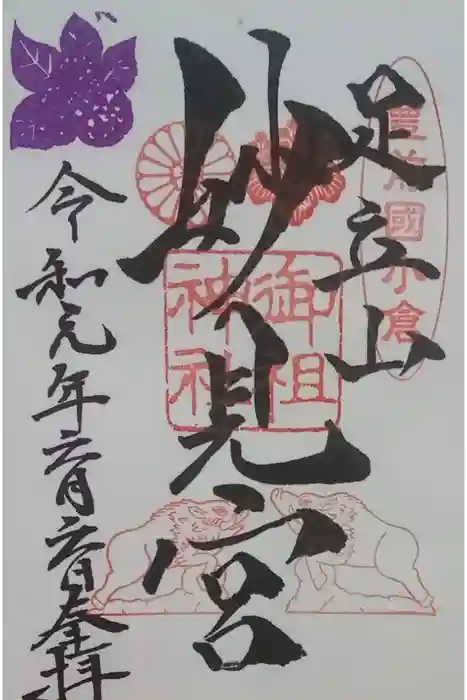 豊前國小倉
足立山
妙見宮
御祖
神社
令和元年六月六日奉拝